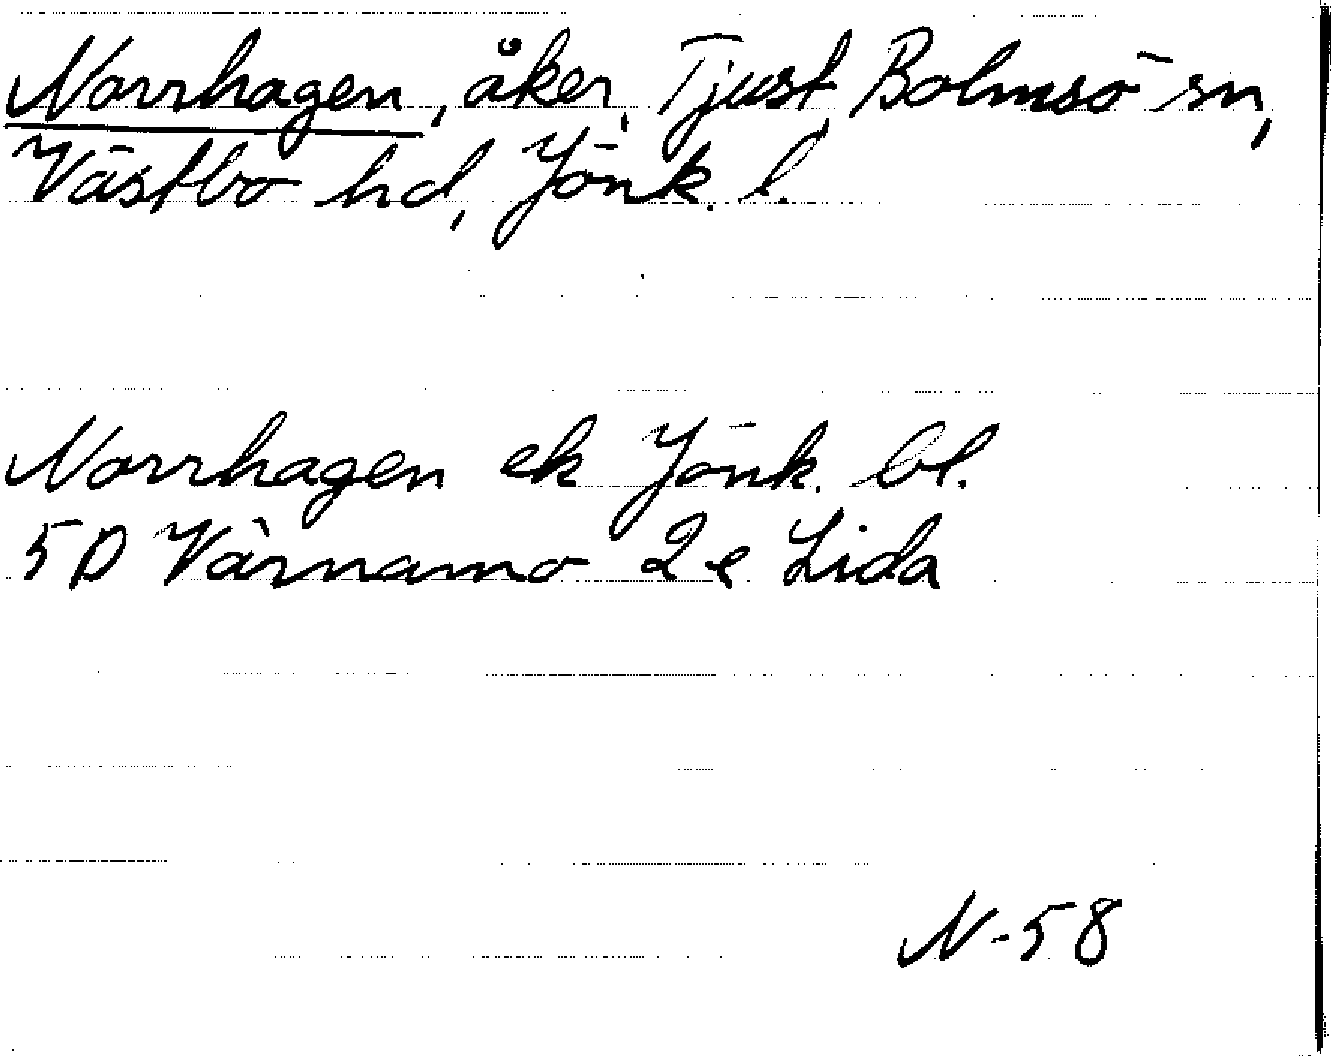 Norrhagen, åker, Tjust, Bolmsö sn,
Västbo hd, Jönk. l.
Norrhagen ek Jönk. bl.
5D Värnamo 2e Lida
N-58